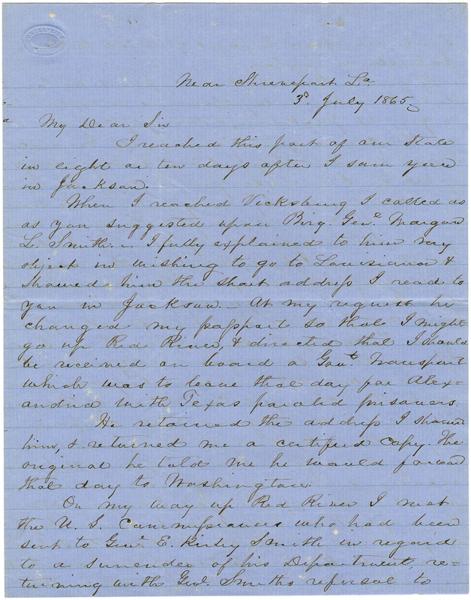 Near Shreveport La
3d July 1865
My Dear Sir
I reached this part of our State
in eight or ten days after I saw you
in Jackson.
When I reached Vicksburg I called as
as you suggested upon Brig. Genl Morgan
L. Smith. I fully explained to him my
object in wishing to go to Louisiana &
showed him the short address I read to
you in Jackson. At my request he
changed my passport so that I might
go up Red River, & directed that I should
be received on board a Govt. transport
which was to leave that day for Alex-
andria with Texas paroled prisoners.
He retained the address I showed
him, & returned me a certified copy. The
original he told me he would forward
that day to Washington.
On my way up Red River I met
the U. S. Commissioners who had been
sent to Genl E. Kirby Smith in regard
to a surrender of his Department, re-
turning with Genl Smiths refusal to